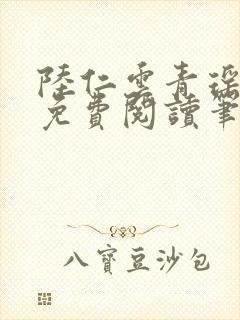 陸仁雲青瑤
免費閱讀筆
八寶豆沙包